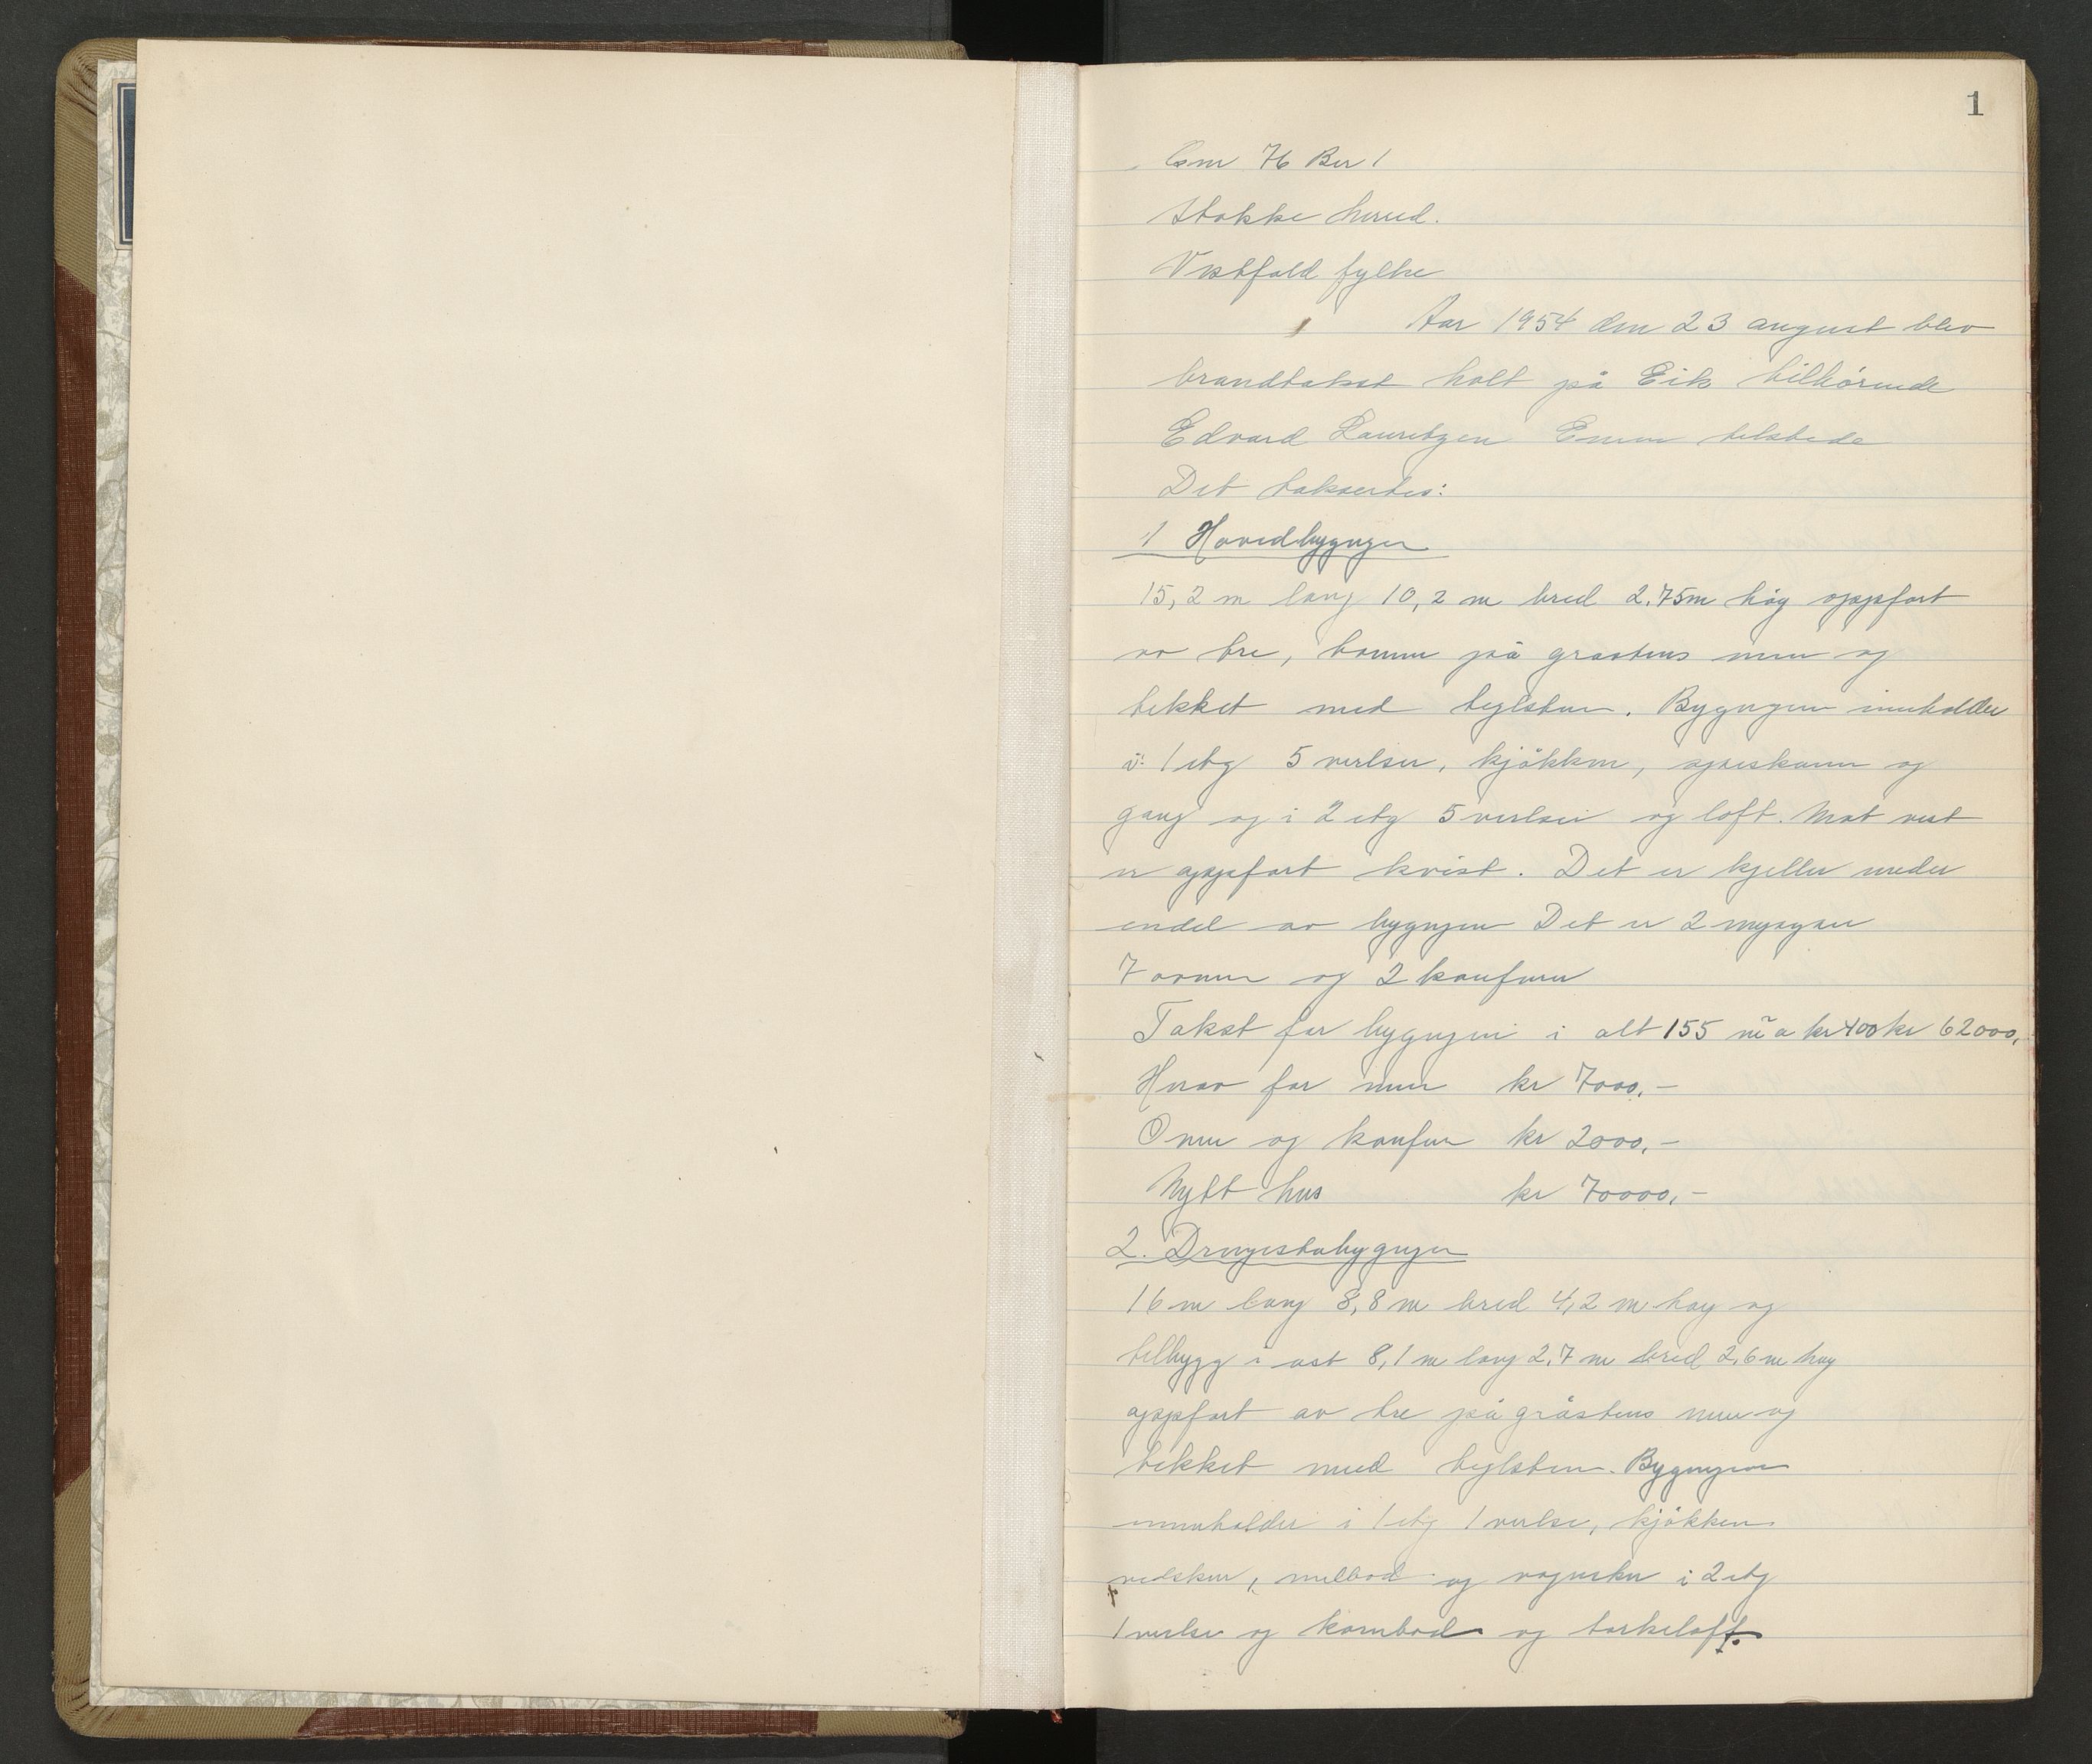 1
Gnr 76 Bnr 1
Stokke herred.
Vestfold fylke
Aar 1954 den 23 august blev
brandtakst holt på Eik tilhørende
Edvard Lauritzen Eieren tilstede
Det taksertes:
1 Hovedbygngen
15,2 m lang 10,2 m bred 2,75m høg oppført
av tre, tømmer på graastens mur og
tekket med teglsten. Bygngen inneholder
i: 1 etg 5 verelser, kjøkken, spiskamer og
gang og i 2 etg 5 verelser og loft. Mot vest
er oppført kvist. Det er kjeller under
endel av bygngen Det er 2
7 ovner og 2 komfurer
Takst for bygngen i alt 155 m² a kr 400 kr 62000,
Herav for mur kr 7000.-
Ovner og komfur kr 2000.-
Nytt hus kr 70000.-
2. Drengestubygngen
16 m lang 8,8 m bred 4,2 m høg og
tilbygg i øst 8,1 m lang 2,7 m bred 2,6 m høg
oppført av tre på gråstens mur og
tekket med teglsten. Bygngen
innholder i 1 etg 1 verelse, kjøkken
vedskur, melbod og vognskur i 2 etg
1 verelse og kornbod og tørkeloft.